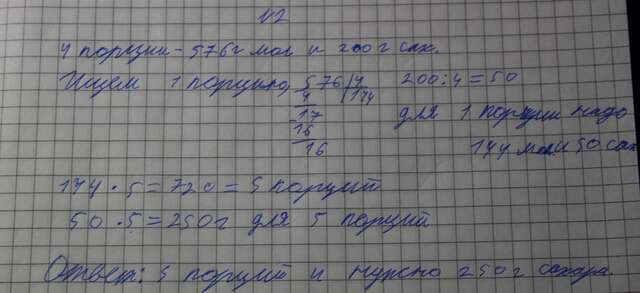 №2
4 порции - 576 г мол и 200 г сах.
Ищем 1 порцию, 576 | 4 200 : 4 = 50
4 144
17 для 1 порции надо
16
16 144 мол и 50 сах
144 · 5 = 720 = 5 порций
50 · 5 = 250 г для 5 порций
Ответ: 5 порций и нужно 250 г сахара.